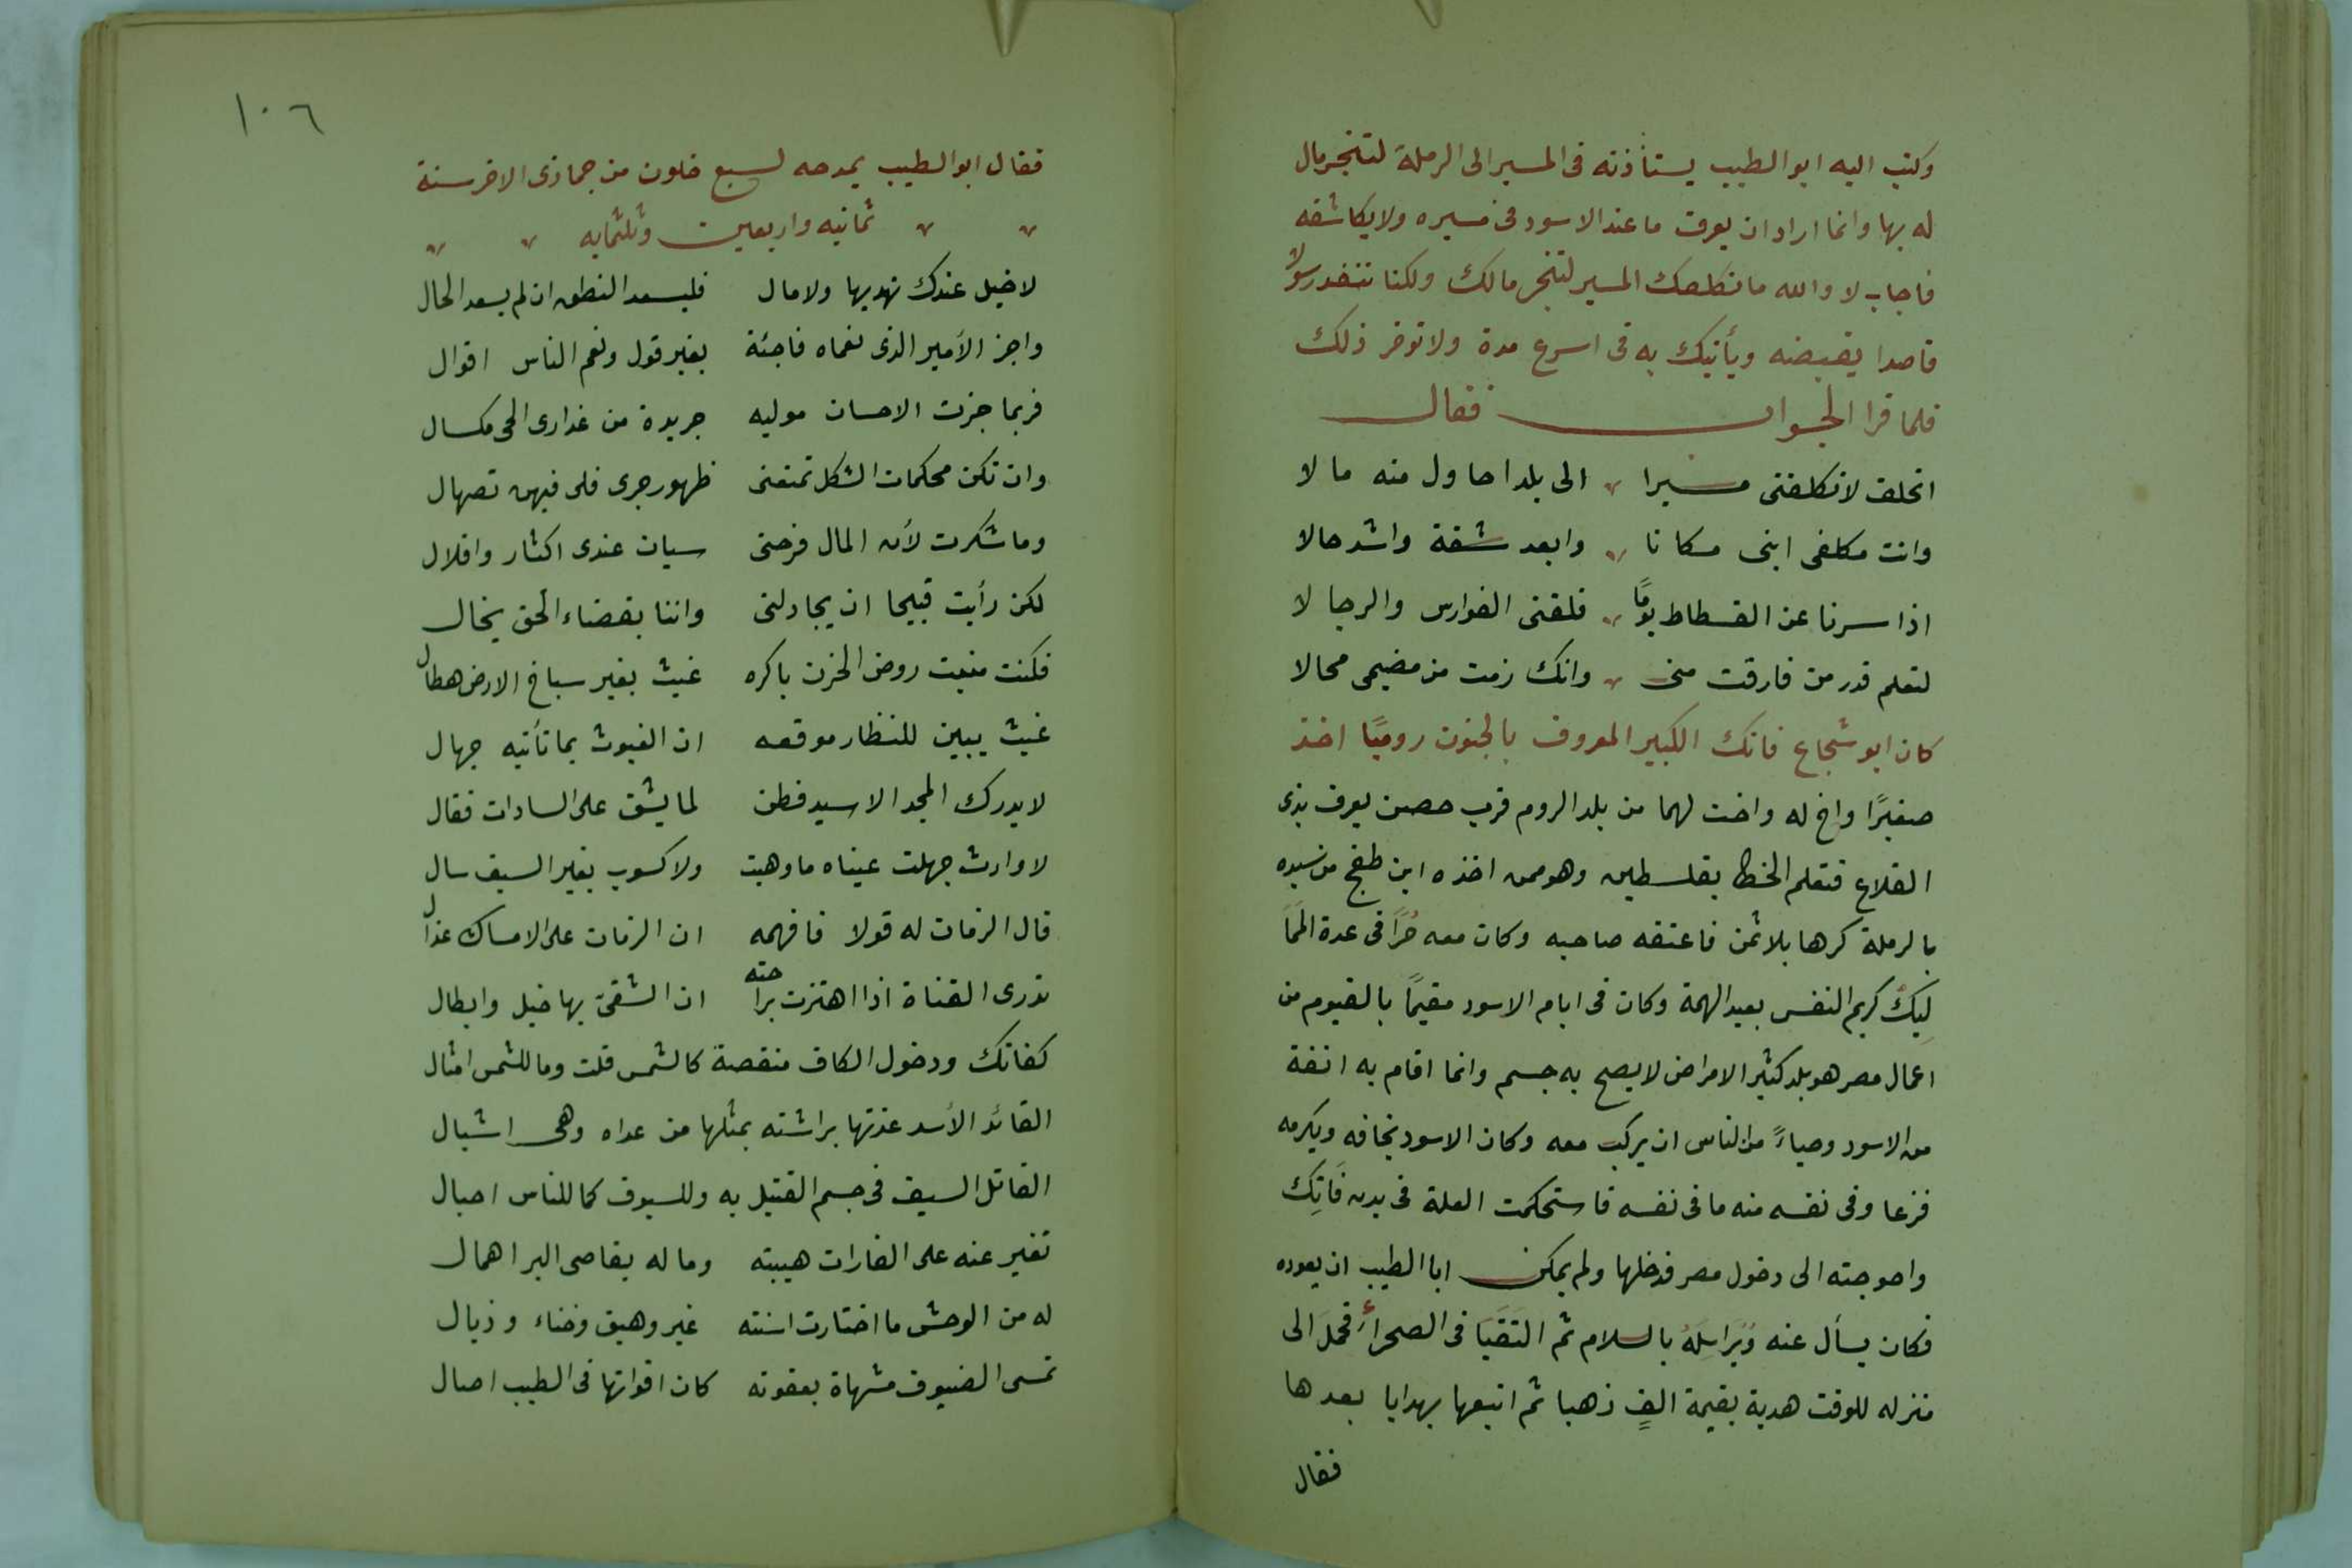 وكتب اليه ابو الطيب يستأذنه فى المسير الى الرملة لتنجز مال
له بها وانما اراد ان يعرف ما عند الاسود فى مسيره ولا يكاشفه
فاجاب لا والله ما نكلفك المسير لتنجز مالك ولكنا ننفذ رسولا
قاصدا يقبضه ويأتيك به فى اسرع مدة ولا نوخر ذلك
فلما قرا الجواب فقال
اتحلف لا تكلفنى مسيرا الى بلد احاول منه ما لا
وانت مكلفى انبى مكانا وابعد شقة واشد حالا
اذا سرنا عن الفسطاط يومًا فلقنى الفوارس والرجا لا
لتعلم قدر من فارقت منى وانك رمت من ضيمى محالا
كان ابو شجاع فاتك الكبير المعروف بالمجنون روميًا اخذ
صغيرًا واخ له واخت لهما من بلد الروم قرب حصن يعرف بذى
القلاع فتعلم الخط بفلسطين وهو ممن اخذه ابن طغج من سيده
بالرملة كرها بلا ثمن فاعتقه صاحبه وكان معه حُرًا فى عدة المَمَا
لِيك كريم النفس بعيد الهمة وكان فى ايام الاسود مقيمًا بالفيوم من
اعمال مصر هو بلد كثير الامراض لا يصح به جسم وانما اقام به انفة
من الاسود وحياءً من الناس ان يركب معه وكان الاسود يخافه ويكرمه
فزعا وفى نفسه منه ما فى نفسه فاستحكمت العلة فى بدن فَاتِك
واحوجته الى دخول مصر فدخلها ولم يمكن ابا الطيب ان يعوده
فكان يسأل عنه وَيُرَاسِلَهُ بالسلام ثم التَقَيَا فى الصحراء فحمل الى
منزله للوقت هدية بقيمة الفٍ ذهبا ثم اتبعها بهدايا بعدها
فقال
١٠٦
فقال ابو الطيب يمدحه لسبع خلون من جماذى الاخر سنة
ثمانيه واربعين وثلثمايه
لا خيل عندك تهديها ولا مال فليسعد النطق ان لم يسعد الحال
واجز الأمير الذى نعماه فاجئة بغير قول ونعم الناس اقوال
فربما جزت الاحسان موليه جريدة من عذارى الحى مكسال
وان تكن محكمات الشكل تمنعنى ظهور جرى فلى فيهن تصهال
وما شكرت لأن المال فرحنى سيان عندى اكثار واقلال
لكن رأيت قبيحا ان يجادلنى واننا بقضاء الحق بخال
فكنت منبت روض الحزن باكره غيث بغير سباخ الارض هطال
غيث يبين للنظار موقعه ان الغيوث بما تأتيه جهال
لا يدرك المجد الا سيد فطن لما يشق على السادات فقال
لا وارث جهلت عيناه ما وهبت ولا كسوب بغير السيف سال
قال الزمان له قولا فافهمه ان الزمان على الامساك عذال
تدرى القناة اذا اهتزت براحته ان الشقىّ بها خيل وابطال
كفاتك ودخول الكاف منقصة كالشمس قلت وما للشمس امثال
القائد الأسد غذتها براثنه بمثلها من عداه وهى اشبال
القاتل السيف فى جسم القتيل به وللسيوف كما للناس اجال
تغير عنه على الغارات هيبته وما له بقاصى البر اهمال
له من الوحش ما اختارت اسنته عير وهيق وخناء وذيال
تمسى الضيوف مشهاة بعقوته كان اقواتها فى الطيب اصال